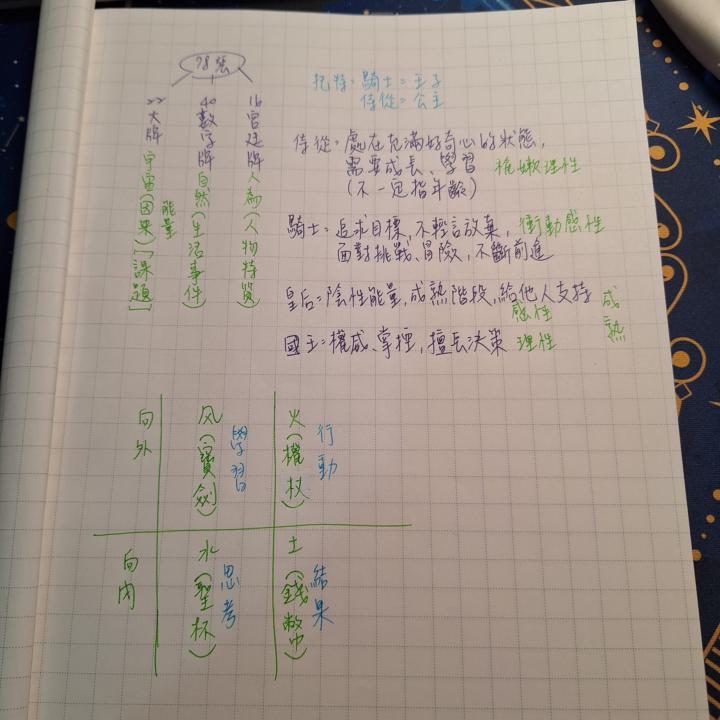 78張
22大牌 宇宙(因果)【課題】
能量
40數字牌 自然(生活事件)
16宮廷牌 人為(人物特質)
托特:騎士=王子
侍從=公主
侍從:處在充滿好奇心的狀態,
需要成長、學習 稚嫩理性
(不一定指年齡)
騎士:追求目標,不輕言放棄, 衝動感性
面對挑戰、冒險,不斷前進
皇后:陰性能量,成熟階段,給他人支持
感性
成熟
國王:權威、掌控,擅長決策 理性
向外
風(寶劍) 學習
火(權杖) 行動
向內
水(聖杯) 思考
土(錢幣) 結果